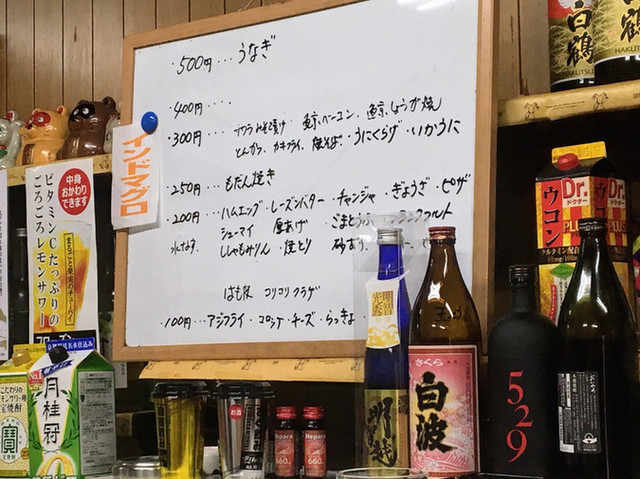 ・500円・・・うなぎ
・400円・・・・
・300円・・・サワラみそ漬け 鯨ベーコン、鯨しょうが焼
とんかつ、カキフライ、焼そば・うにくらげ・いかうに
・250円・・・もだん焼き
・200円・・・ハムエッグ・レーズンバター・チャンジャ・ぎょうざ・ピザ
シューマイ 厚あげ ごまとうふ フランクフルト
ししゃもみりん・焼とり 砂ずり
はも皮 コリコリクラゲ
・100円・・・アジフライ・コロッケ・チーズ・らっきょ
インドマグロ
中身
おかわり
できます
ビタミンCたっぷりの
ごろごろレモンサワー
まるごと果実のチューハイ
月桂冠
寶
白鶴
HAKUTSU
Dr.
ドクター
ウコン
PLUS
Dr.
ドクター
PLUS
さくら
白波
529
お酒
Hepara
660
Hepara
660